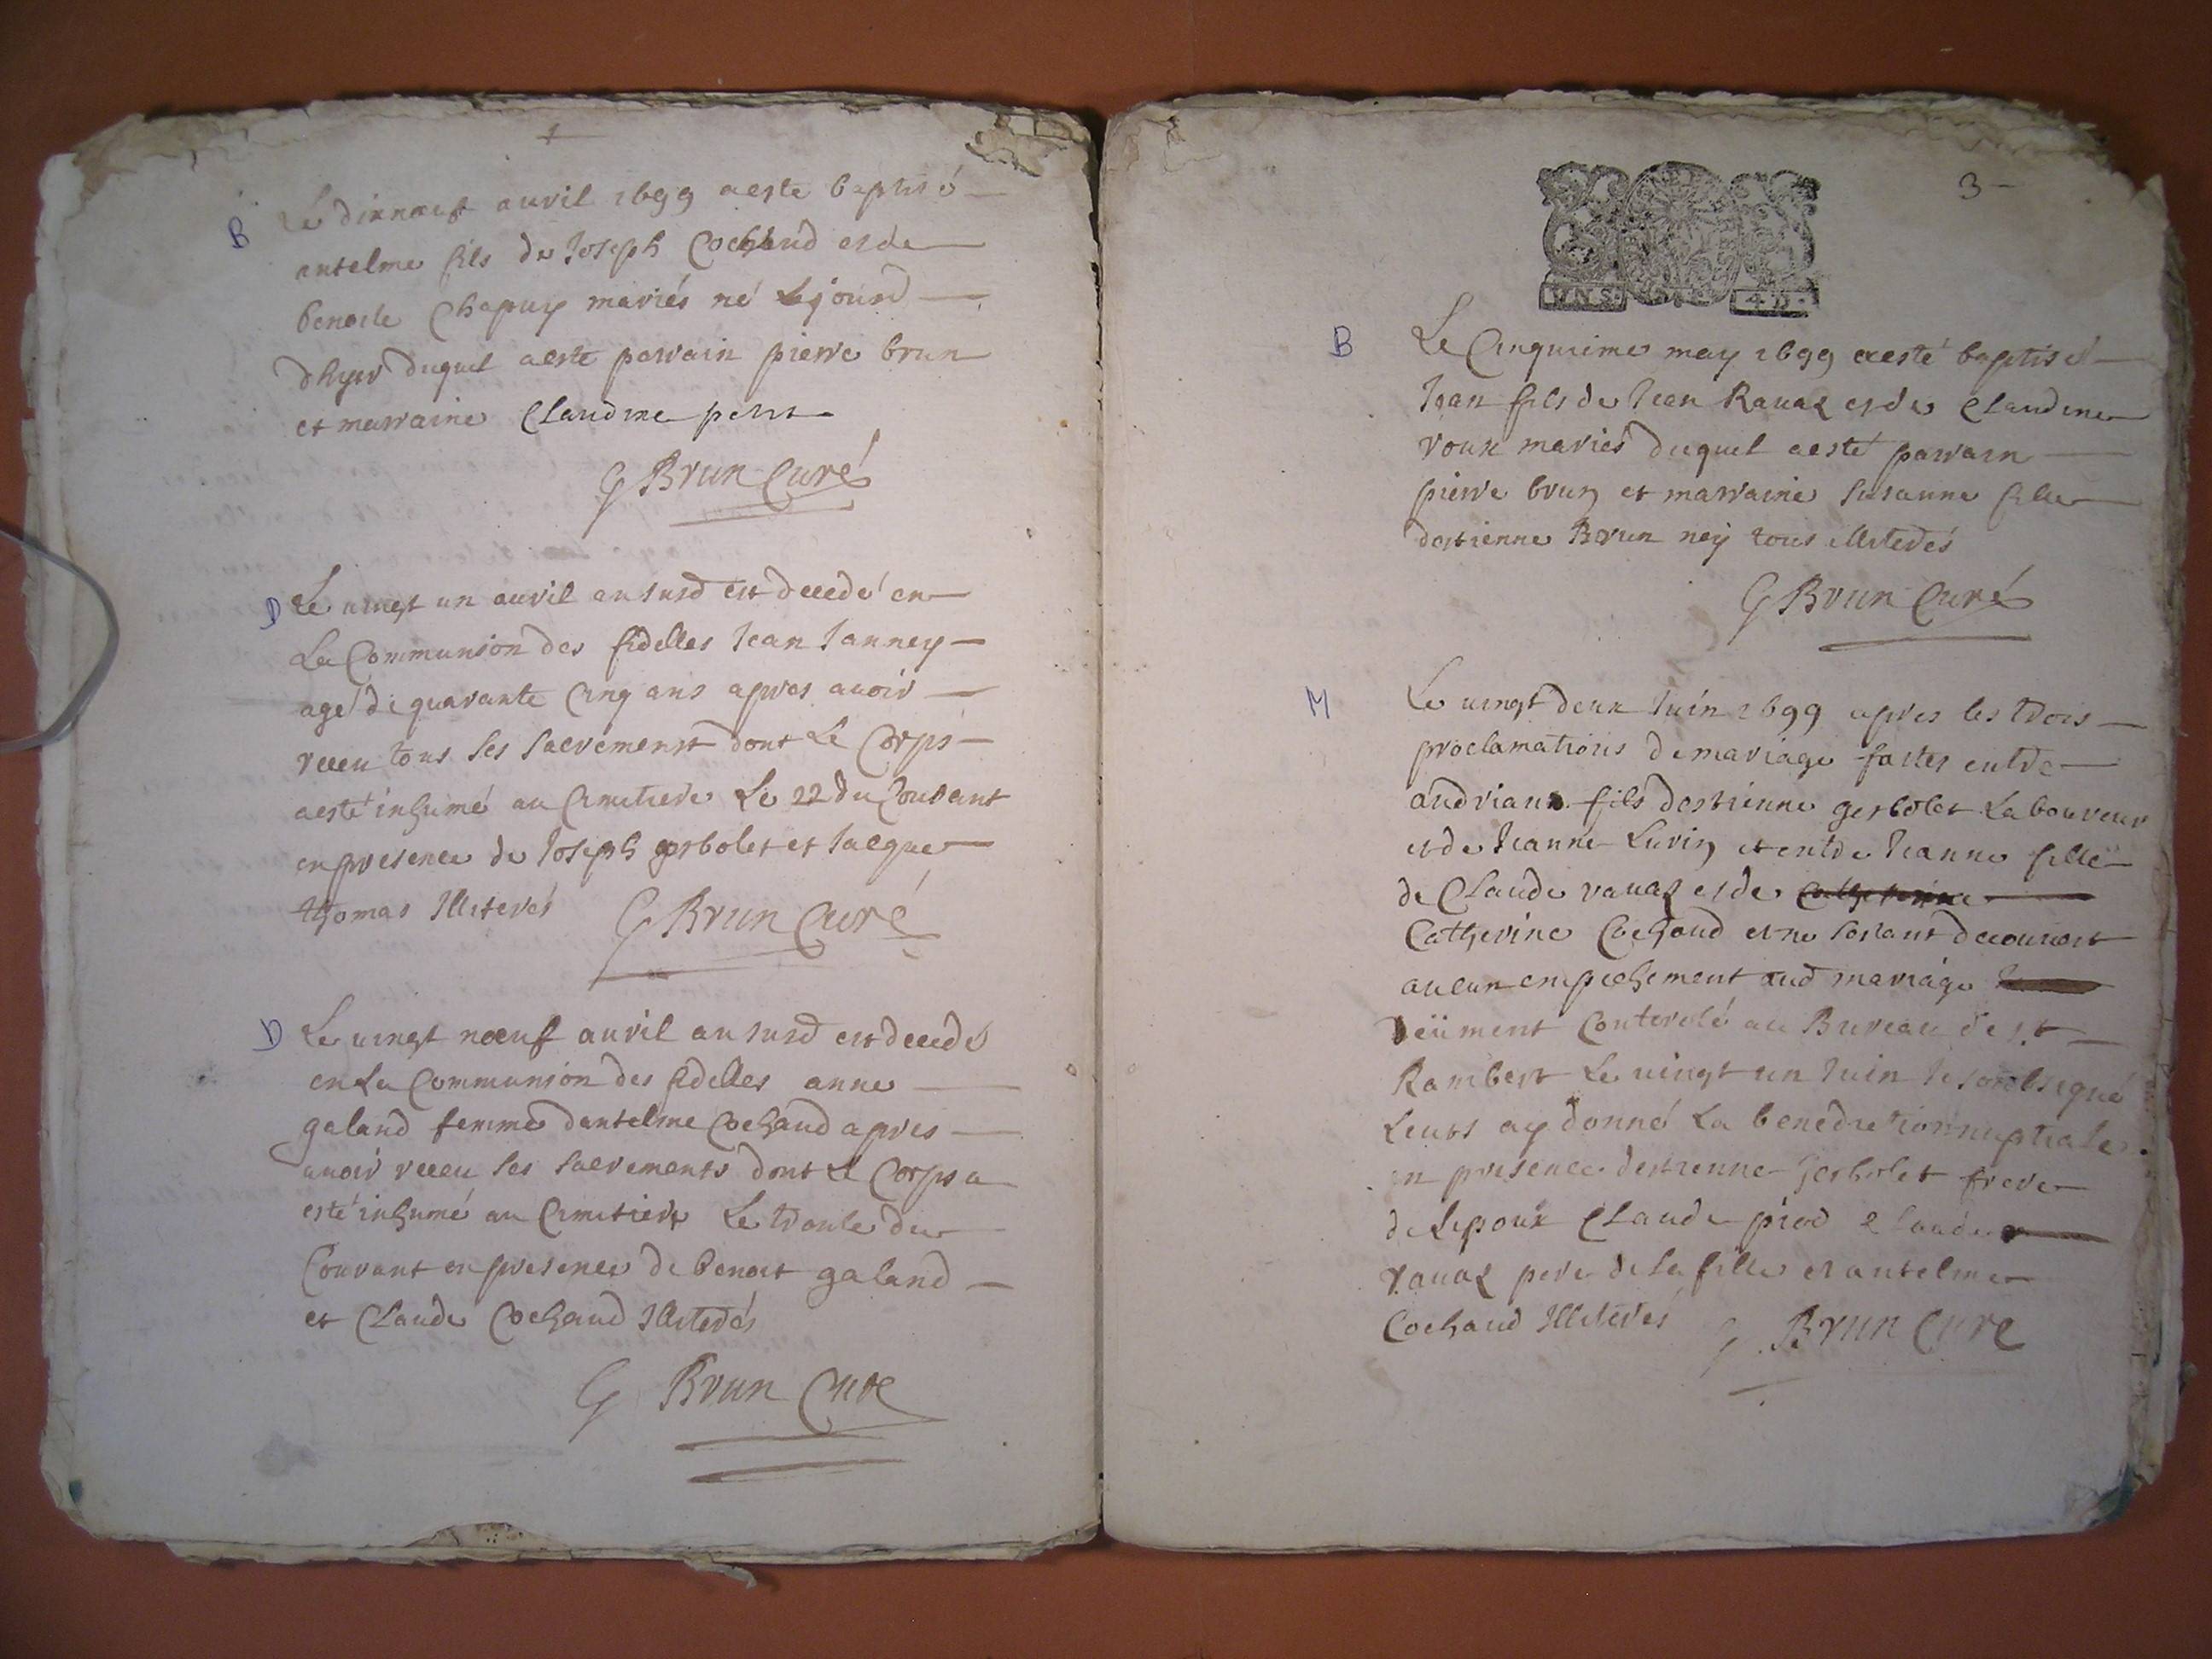 B
Le dixneuf auril 1699 a este baptisé
antelme fils de Joseph Cochaud et de
benoite Chapuy mariés né Le jourd
dhyer duquel a este parrain pierre brun
et marraine Claudine petit
G Brun Curé
D
Le uingt un auril an susd est decedé en
La Communion des fidelles Jean Janney
agé de quarante Cinq ans apres auoir
receu tous ses sacrements dont Le Corps
a esté inhumé au Cimetiere Le 22 du Courant
en presence de Joseph gerbolet et Jacque
thomas Illiterés
G Brun Curé
D
Le uingt noeuf auril an susd est decedé
en La Communion des fidelles anne
galand femme dantelme Cochaud apres
auoir receu ses sacrements dont Le Corps a
esté inhumé au Cimetiere Le trente du
Courant en presence de benoit galand
et Claude Cochaud Illiterés
G Brun Curé
3
B
Le Cinquieme may 1699 a esté baptisé
Jean fils de Jean Rauaz et de Claudine
roux mariés duquel a esté parrain
pierre brun et marraine Susanne fille
destienne Brun tous illiterés
G Brun Curé
M
Le uingt deux Juin 1699 apres les trois
proclamations de mariage faites entre
andriane fils destienne gerbolet Laboureur
et de Jeanne Lurin et entre Jeanne fille
de Claude rauaz et de Catherine
Catherine Cochaud et ne sestant decouuert
aucun empechement aud mariage
deüment Controlé au Bureau de st
Rambert Le uingt un Juin Je soubsigné
Leurs ay donné La benediction nuptiale
en presence destienne gerbolet frere
de Lepoux Claude piod Claude
rauaz pere de La fille et antelme
Cochaud Illiterés
G Brun Curé